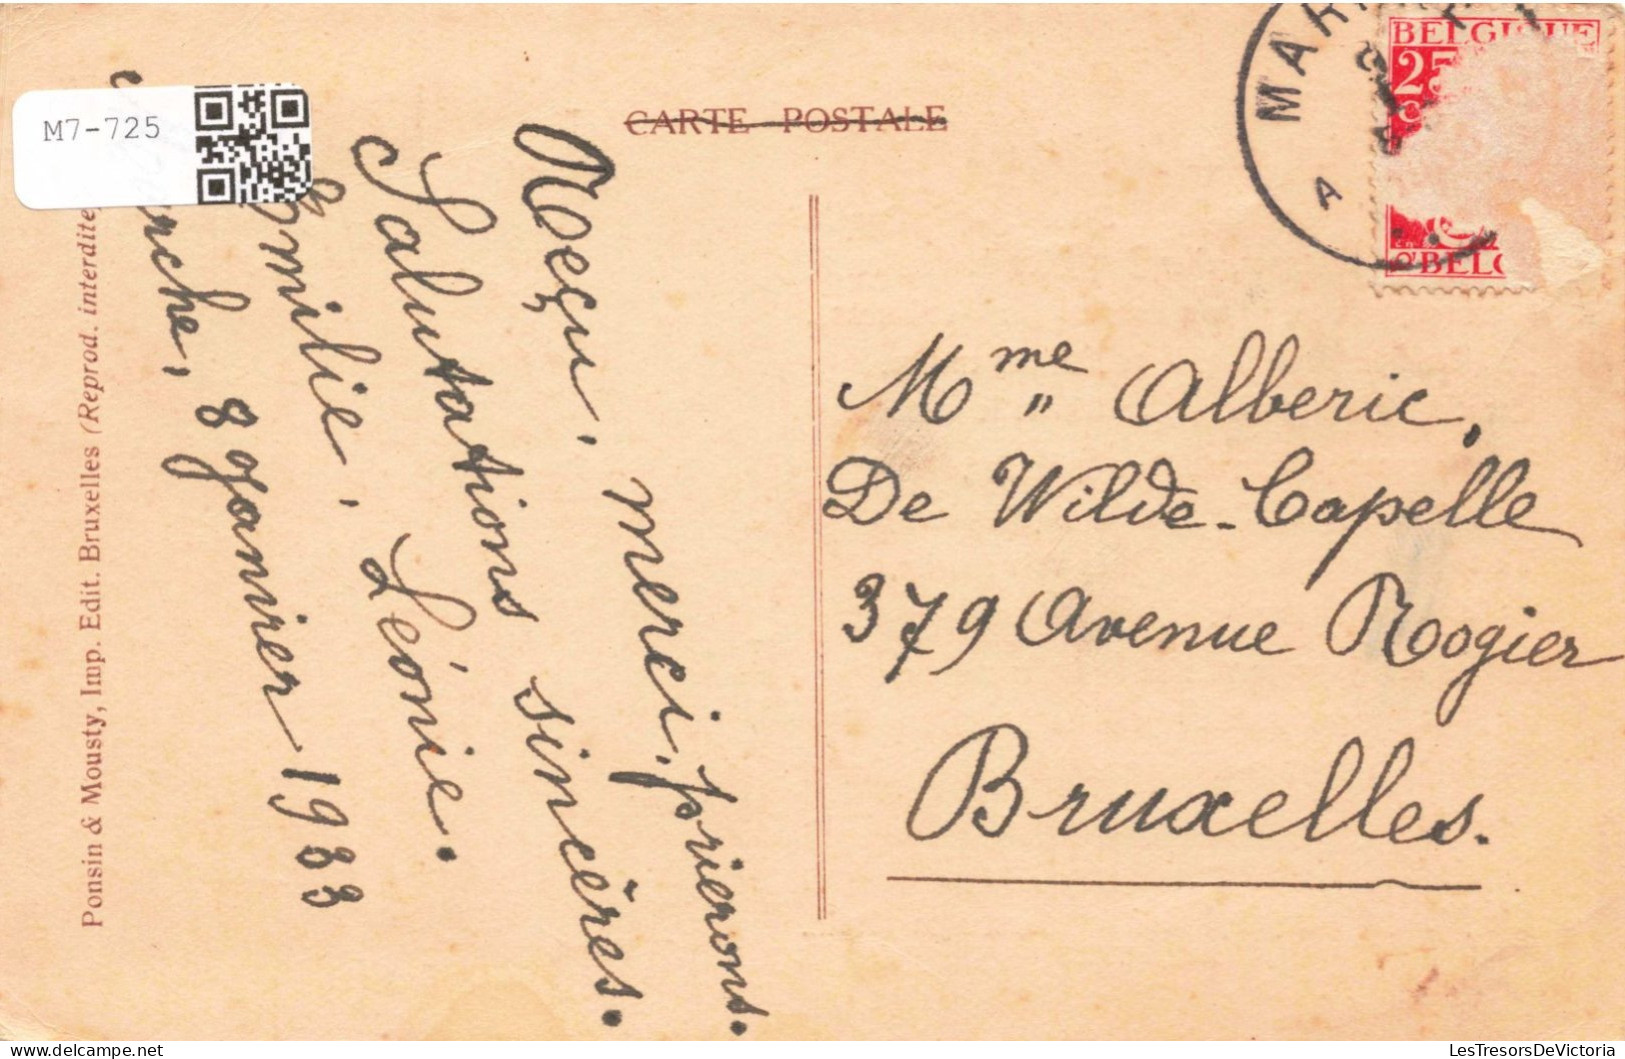 M7-725
CARTE POSTALE
BELGIQUE
25
MAR
A
BELG
Reçu, merci, prierons.
Salutations sincères.
Emilie, Léonie.
8 janvier 1933
Ponsin & Mousty, Imp. Edit. Bruxelles (Reprod. interdite)
Mme Alberic,
De Wilde-Capelle
379 Avenue Rogier
Bruxelles.
LesTresorsDeVictoria